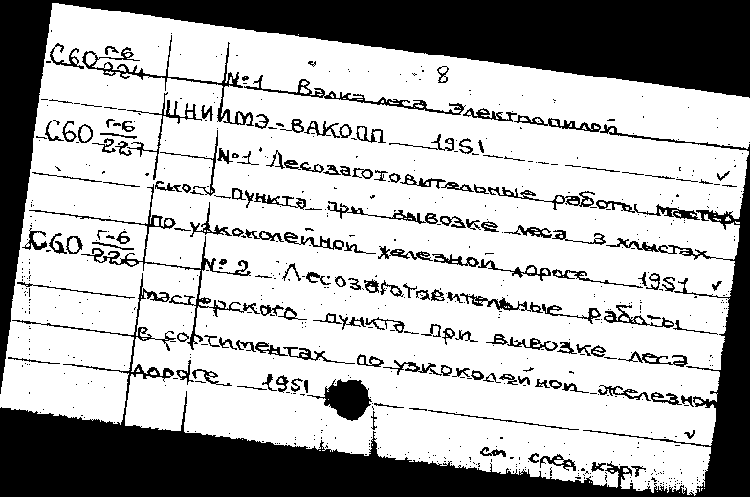 8
С60 г-6/224 №1 Валка леса электропилой
ЦНИИМЭ-ВАКОПП 1951 ✓
С60 г-6/227 №1 Лесозаготовительные работы мастер-
ского пункта при вывозке леса в хлыстах
по узкоколейной железной дороге. 1951 ✓
С60 г-6/226 №2 Лесозаготовительные работы
мастерского пункта при вывозке леса
в сортиментах по узкоколейной железной
дороге. 1951 ✓
см. след. карт.